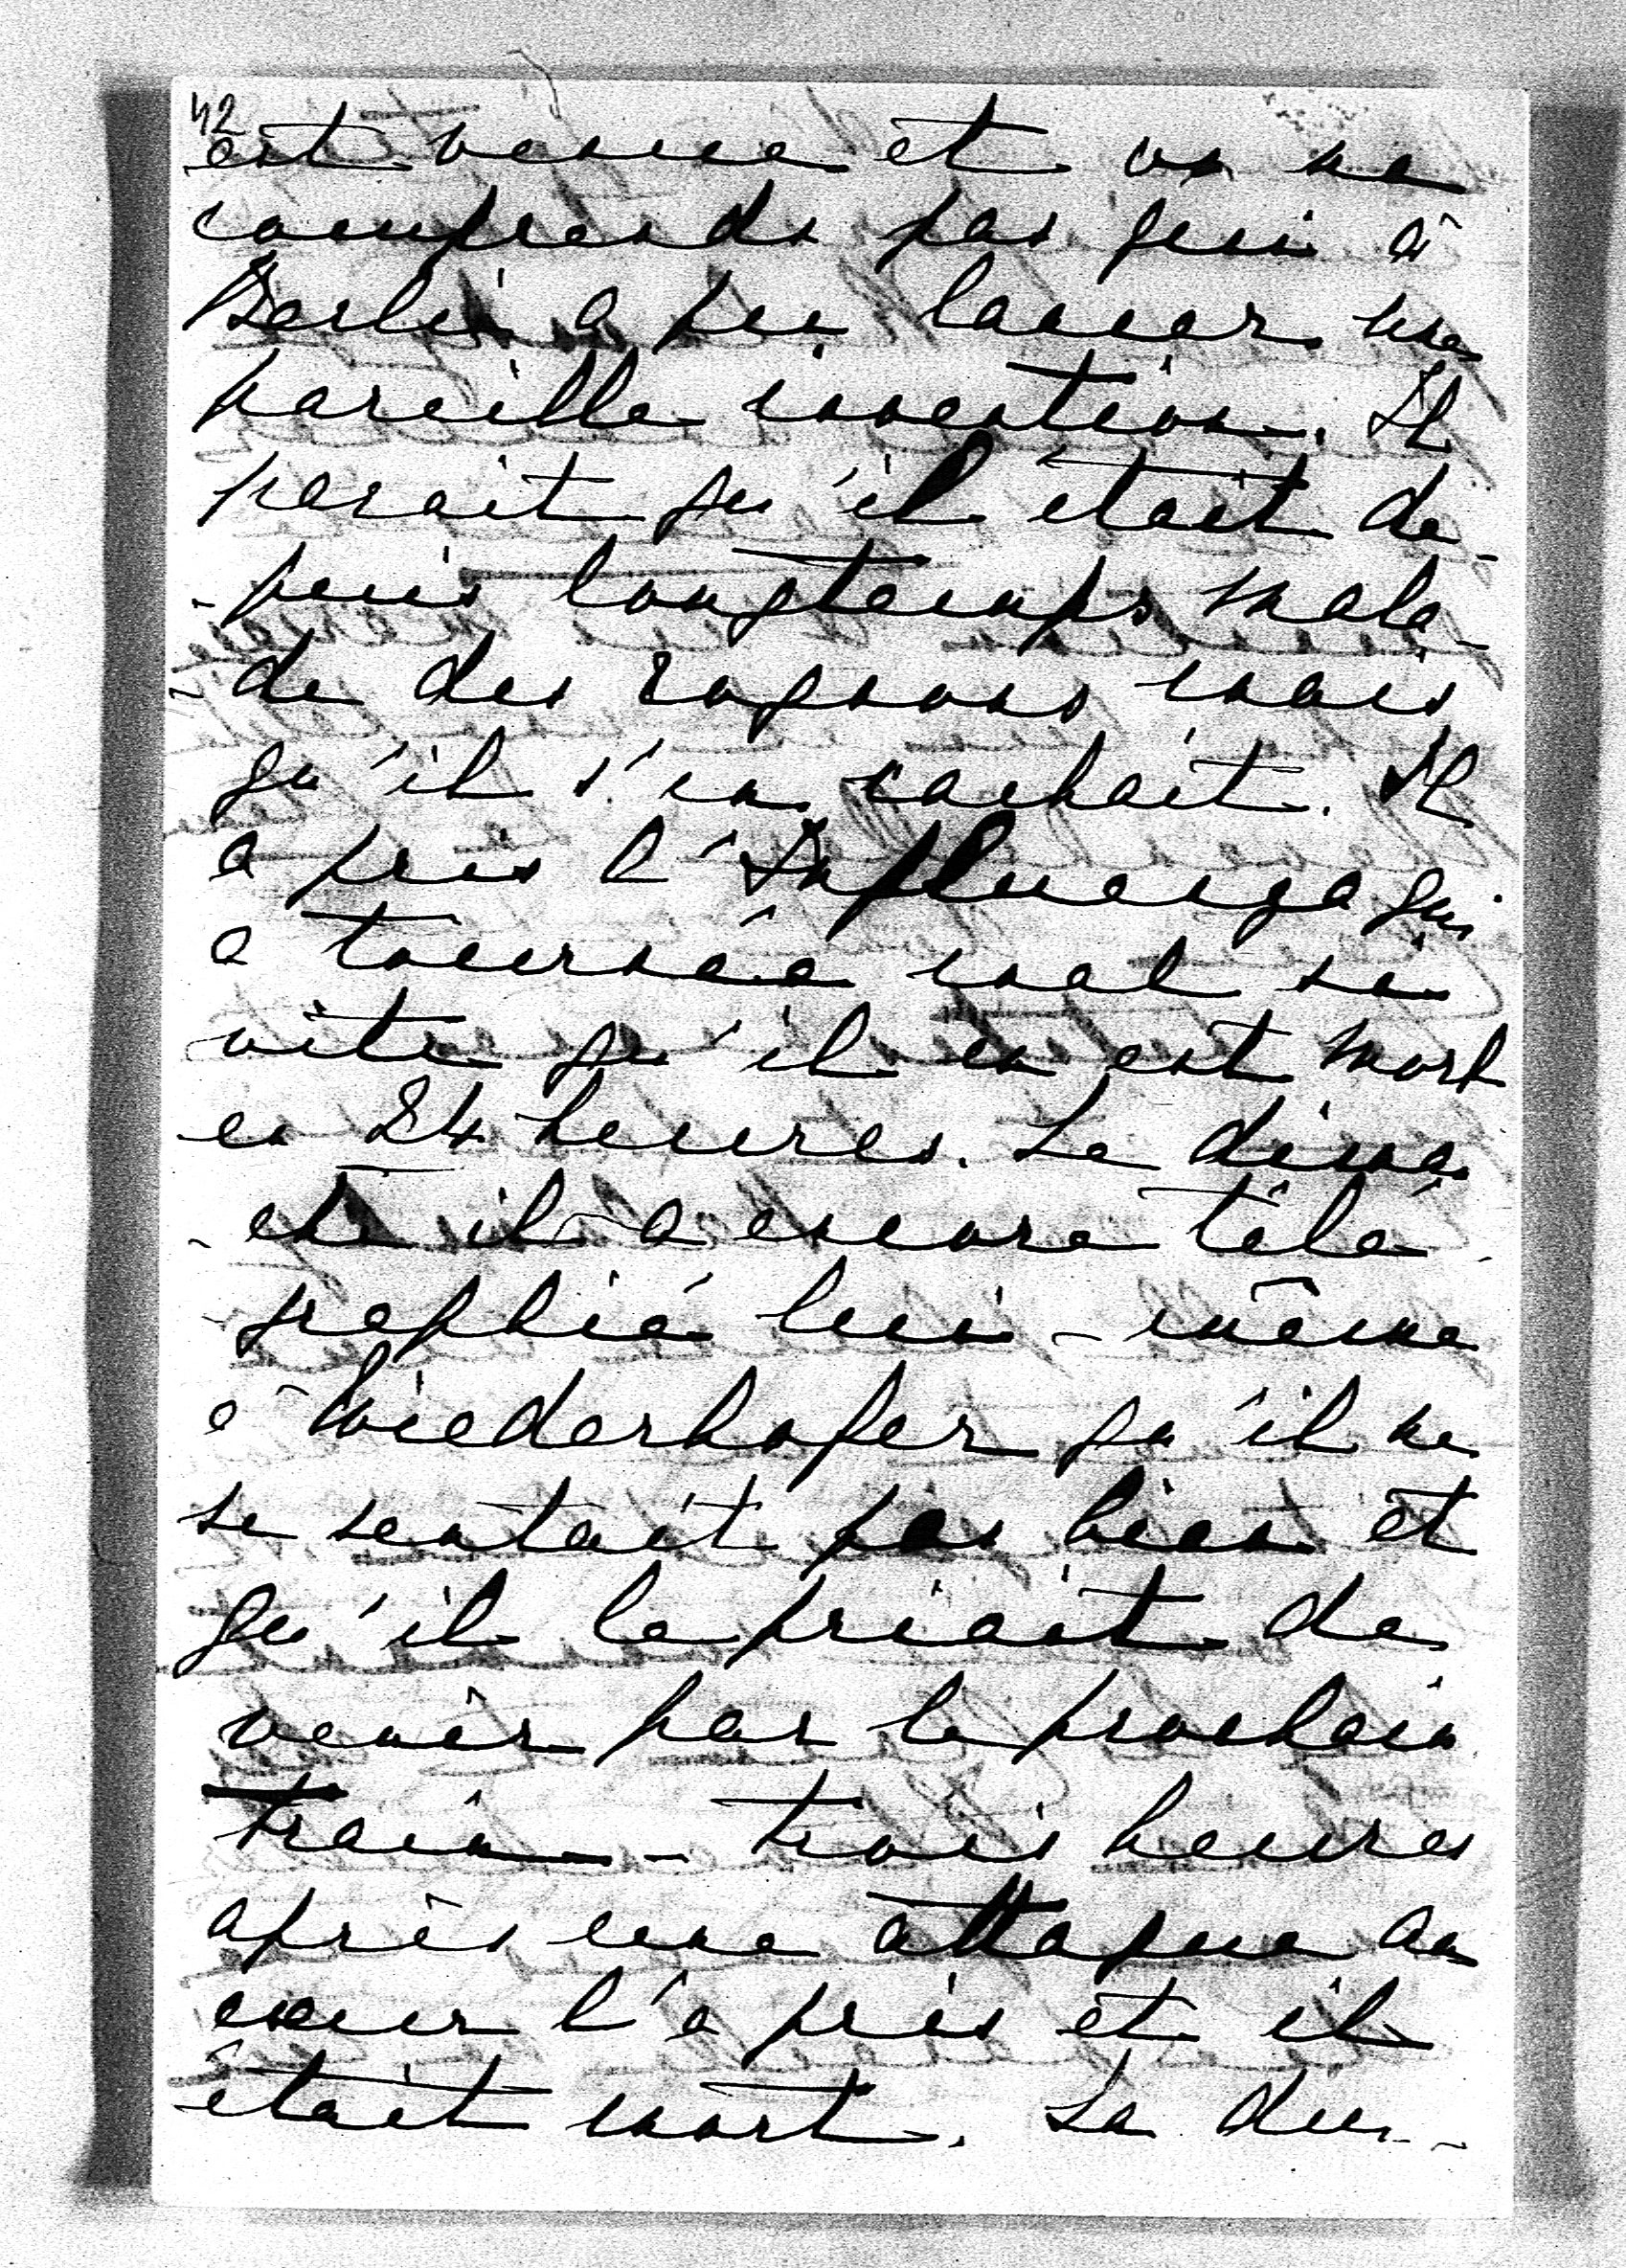 42
est venue et on ne
comprends pas qui à
Berlin a pu lancer une
pareille invention. Il
parait qu'il était de-
-puis longtemps mala-
-de des rognons mais
qu'il s'en cachait. Il
a pris l'Influenza qui
a tournée mal si
vite qu'il en est mort
en 24 heures. Le diman
-che il a encore télé-
-graphié lui-même
à Wiederhofer qu'il ne
se sentait pas bien et
qu'il le priait de
venir par le prochain
train - trois heures
après une attaque au
coeur l'a pris et il
était mort. La du-